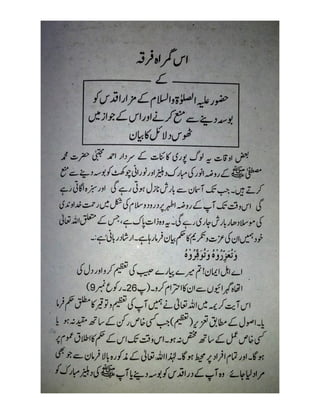 اس گمراہ فرقہ
کے
حضور علیہ الصلوٰۃ والسلام کے مزار اقدس کو
بوسہ دینے سے منع کرنے اور اس کے جواز میں
ٹھوس دلائل کا بیان
بعض اوقات یہ لوگ پوری کائنات کے سردار احمد مجتبیٰ حضرت محمد
مصطفیٰ ﷺ کے روضہ انور کی مبارک دہلیز اور نورانی چوکھٹ کو بوسہ دینے سے منع
کرتے ہیں۔ جب تک آسمان سے بارش نازل ہوتی رہے گی اور سبزہ اگاتی رہے
گی اس وقت تک آپ کے روضہ اطہر پر درود و سلام کی شکل میں رحمت خداوندی
کی موسلا دھار بارش جاری رہے گی۔ یہ وہ ذات پاک ہے، جس کے متعلق اللہ تعالیٰ
خود ہمیں ان کی عزت و تکریم کا حکم بیان فرما رہا ہے۔ ارشاد ربانی ہے:۔
وَتُعَزِّرُوْهُ وَتُوَقِّرُوْهُ
اے اہل ایمان! تم میرے پیارے حبیب کی تعظیم کرو اور دل کی
اتھاہ گہرائیوں سے ان کا احترام کرو۔ (پ 26۔ رکوع نمبر 9)
اس آیت کریمہ میں اللہ تعالیٰ نے ہمیں آپ کی تعظیم و توقیر کا مطلق حکم فرما
یا۔ اصول کے مطابق تعزیر (تعظیم) جب کسی خاص رکن کے ساتھ مقید نہ ہو یا
کسی خاص عمل کے ساتھ مختص نہ ہو۔ اس وقت تک اس کے حکم کا اطلاق عموم پر
ہو گا۔ اور تمام افراد پر محیط ہو گا۔ لہٰذا اللہ تعالیٰ کے مذکورہ بالا فرمان سے جو بھی
مراد لیا جائے وہ آپ کے در اقدس کو بوسہ دینے یا آپ ﷺ کی دہلیز مبارک کو